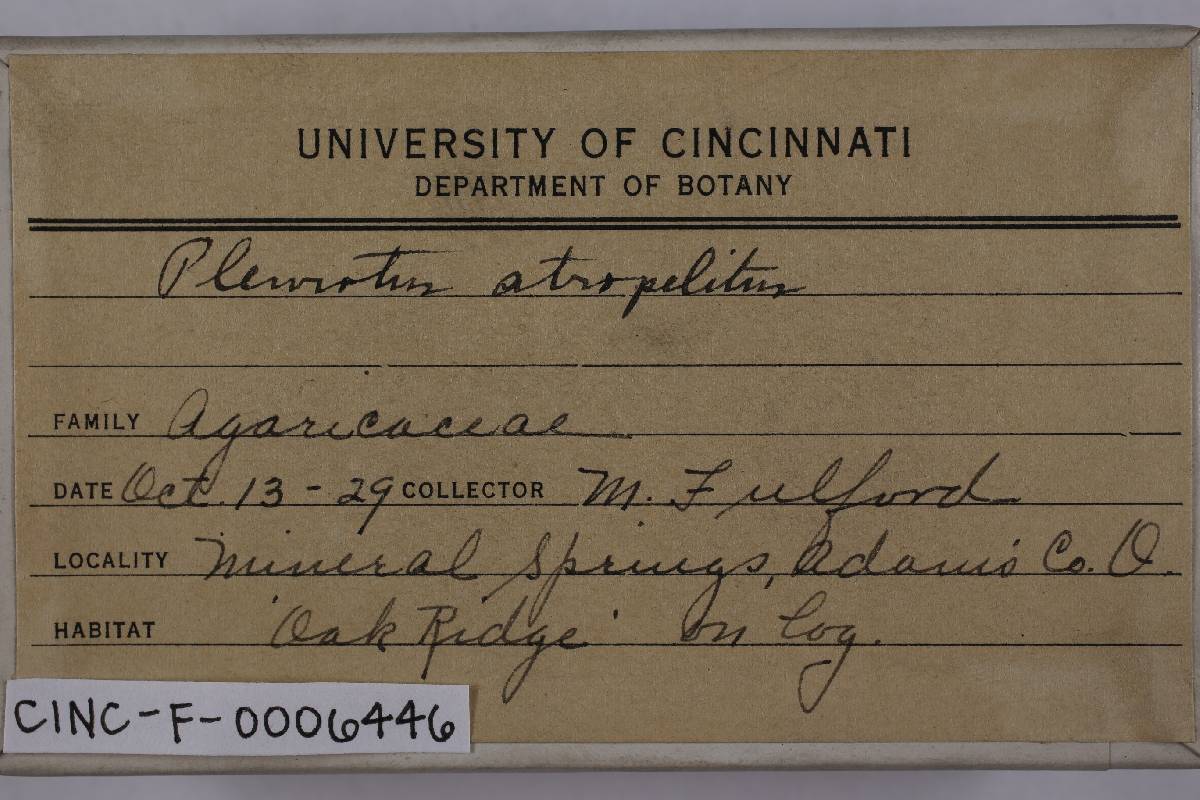 UNIVERSITY OF CINCINNATI
DEPARTMENT OF BOTANY
Pleurotus atropelitus
FAMILY Agaricaceae
DATE Oct. 13 - 29 COLLECTOR M. Fulford
LOCALITY Mineral Springs, Adams Co. O.
HABITAT 'Oak Ridge' on log.
CINC-F-0006446